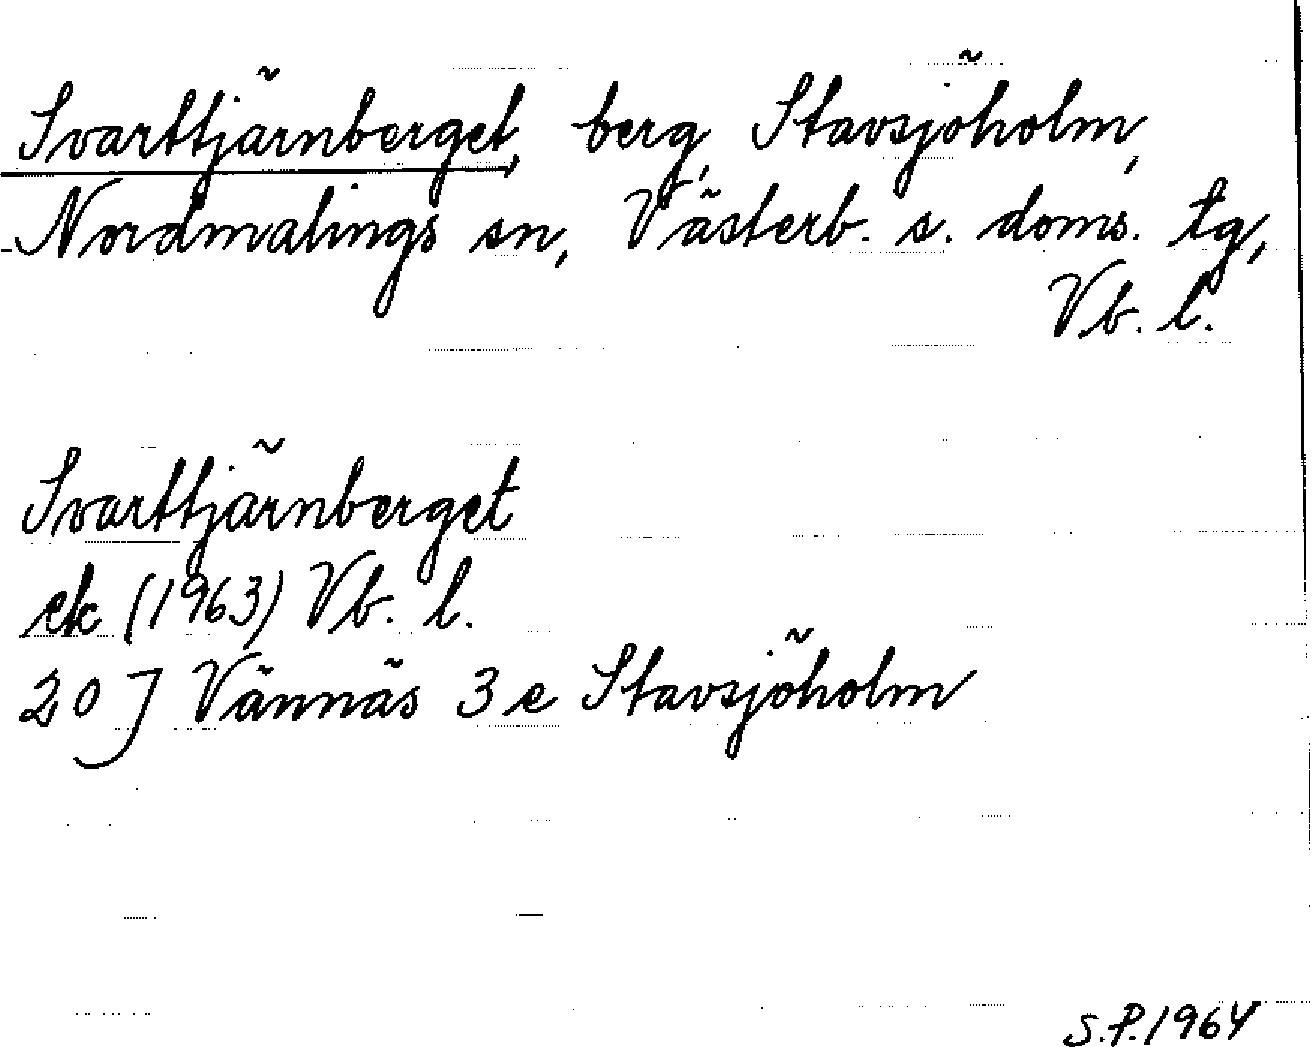 Svarttjärnberget, berg, Stavsjöholm,
Nordmalings sn, Västerb. s. doms. tg,
Vb. l.
Svarttjärnberget
ek (1963) Vb. l.
20 J Vännäs 3 e Stavsjöholm
S.P. 1964